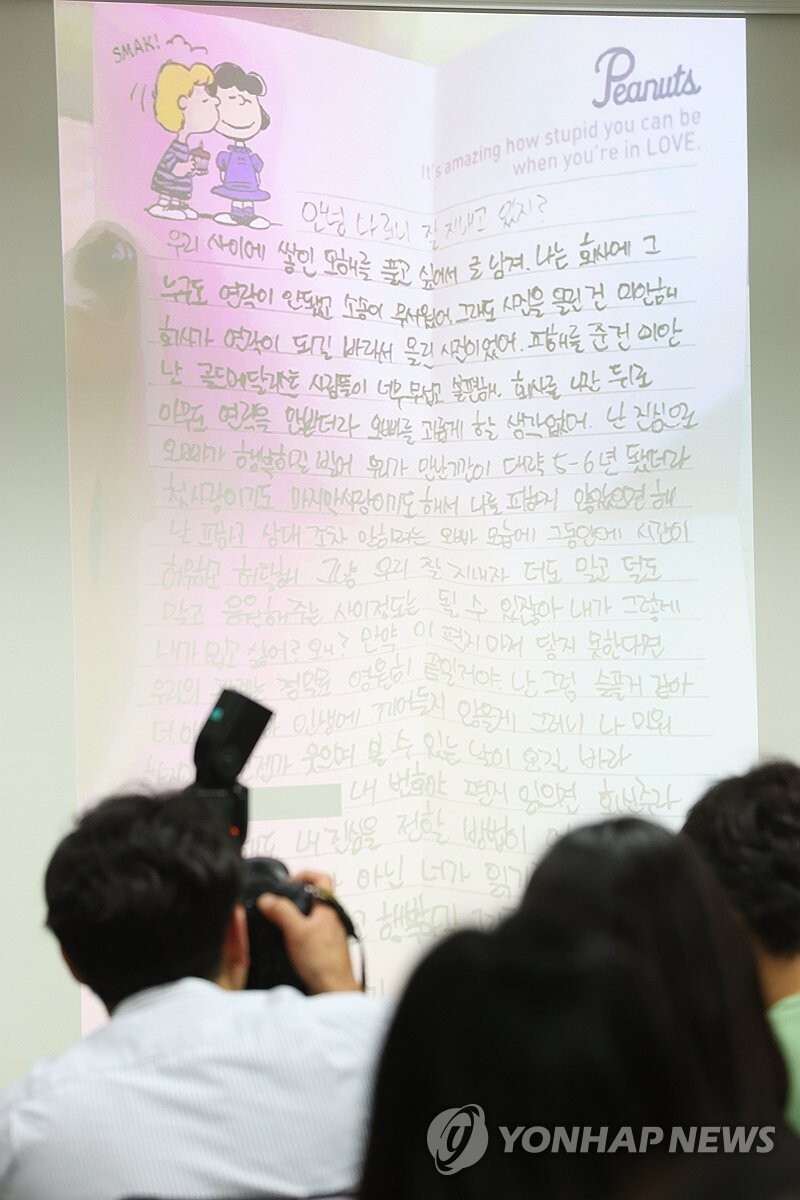 SMAK!
Peanuts
It's amazing how stupid you can be
when you're in LOVE.
안녕 나 론이 잘 지내고 있지?
우리 사이에 쌓인 오해를 풀고 싶어서 글 남겨. 나는 회사에 그
누구도 연락이 안됐고 소송이 무서웠어. 그래도 사진을 올린 건 미안해
회사가 연락이 되길 바라서 올린 사진이었어. 피해를 준건 미안
난 골드메달리스트 사람들이 너무 무섭고 불편해. 회사를 나간 뒤로
아무도 연락을 안받더라 오빠를 괴롭게 할 생각없어. 난 진심으로
오빠가 행복하길 빌어 우리가 만난기간이 대략 5-6년 됐더라
첫사랑이기도 마지막사랑이기도 해서 나를 피하지 않았으면 해
날 피하고 상대 조차 안하려는 오빠 모습에 그동안에 시간이
허무하고 허탈해 그냥 우리 잘 지내자 더도 말고 덜도
말고 응원해주는 사이정도는 될 수 있잖아 내가 그렇게
내가 밉고 싫어? 왜? 만약 이 편지마저 닿지 못한다면
우리의 관계는 정말로 영원히 끝일거야. 난 그럼 슬플거 같아
더 인생에 끼어들지 않을게 그러니 나 미워
웃으며 볼 수 있는 날이 오길 바라
내 번호야 편지 읽으면 회신주라
내 진심을 전할 방법이
아닌 너가 읽기
행복
YONHAP NEWS